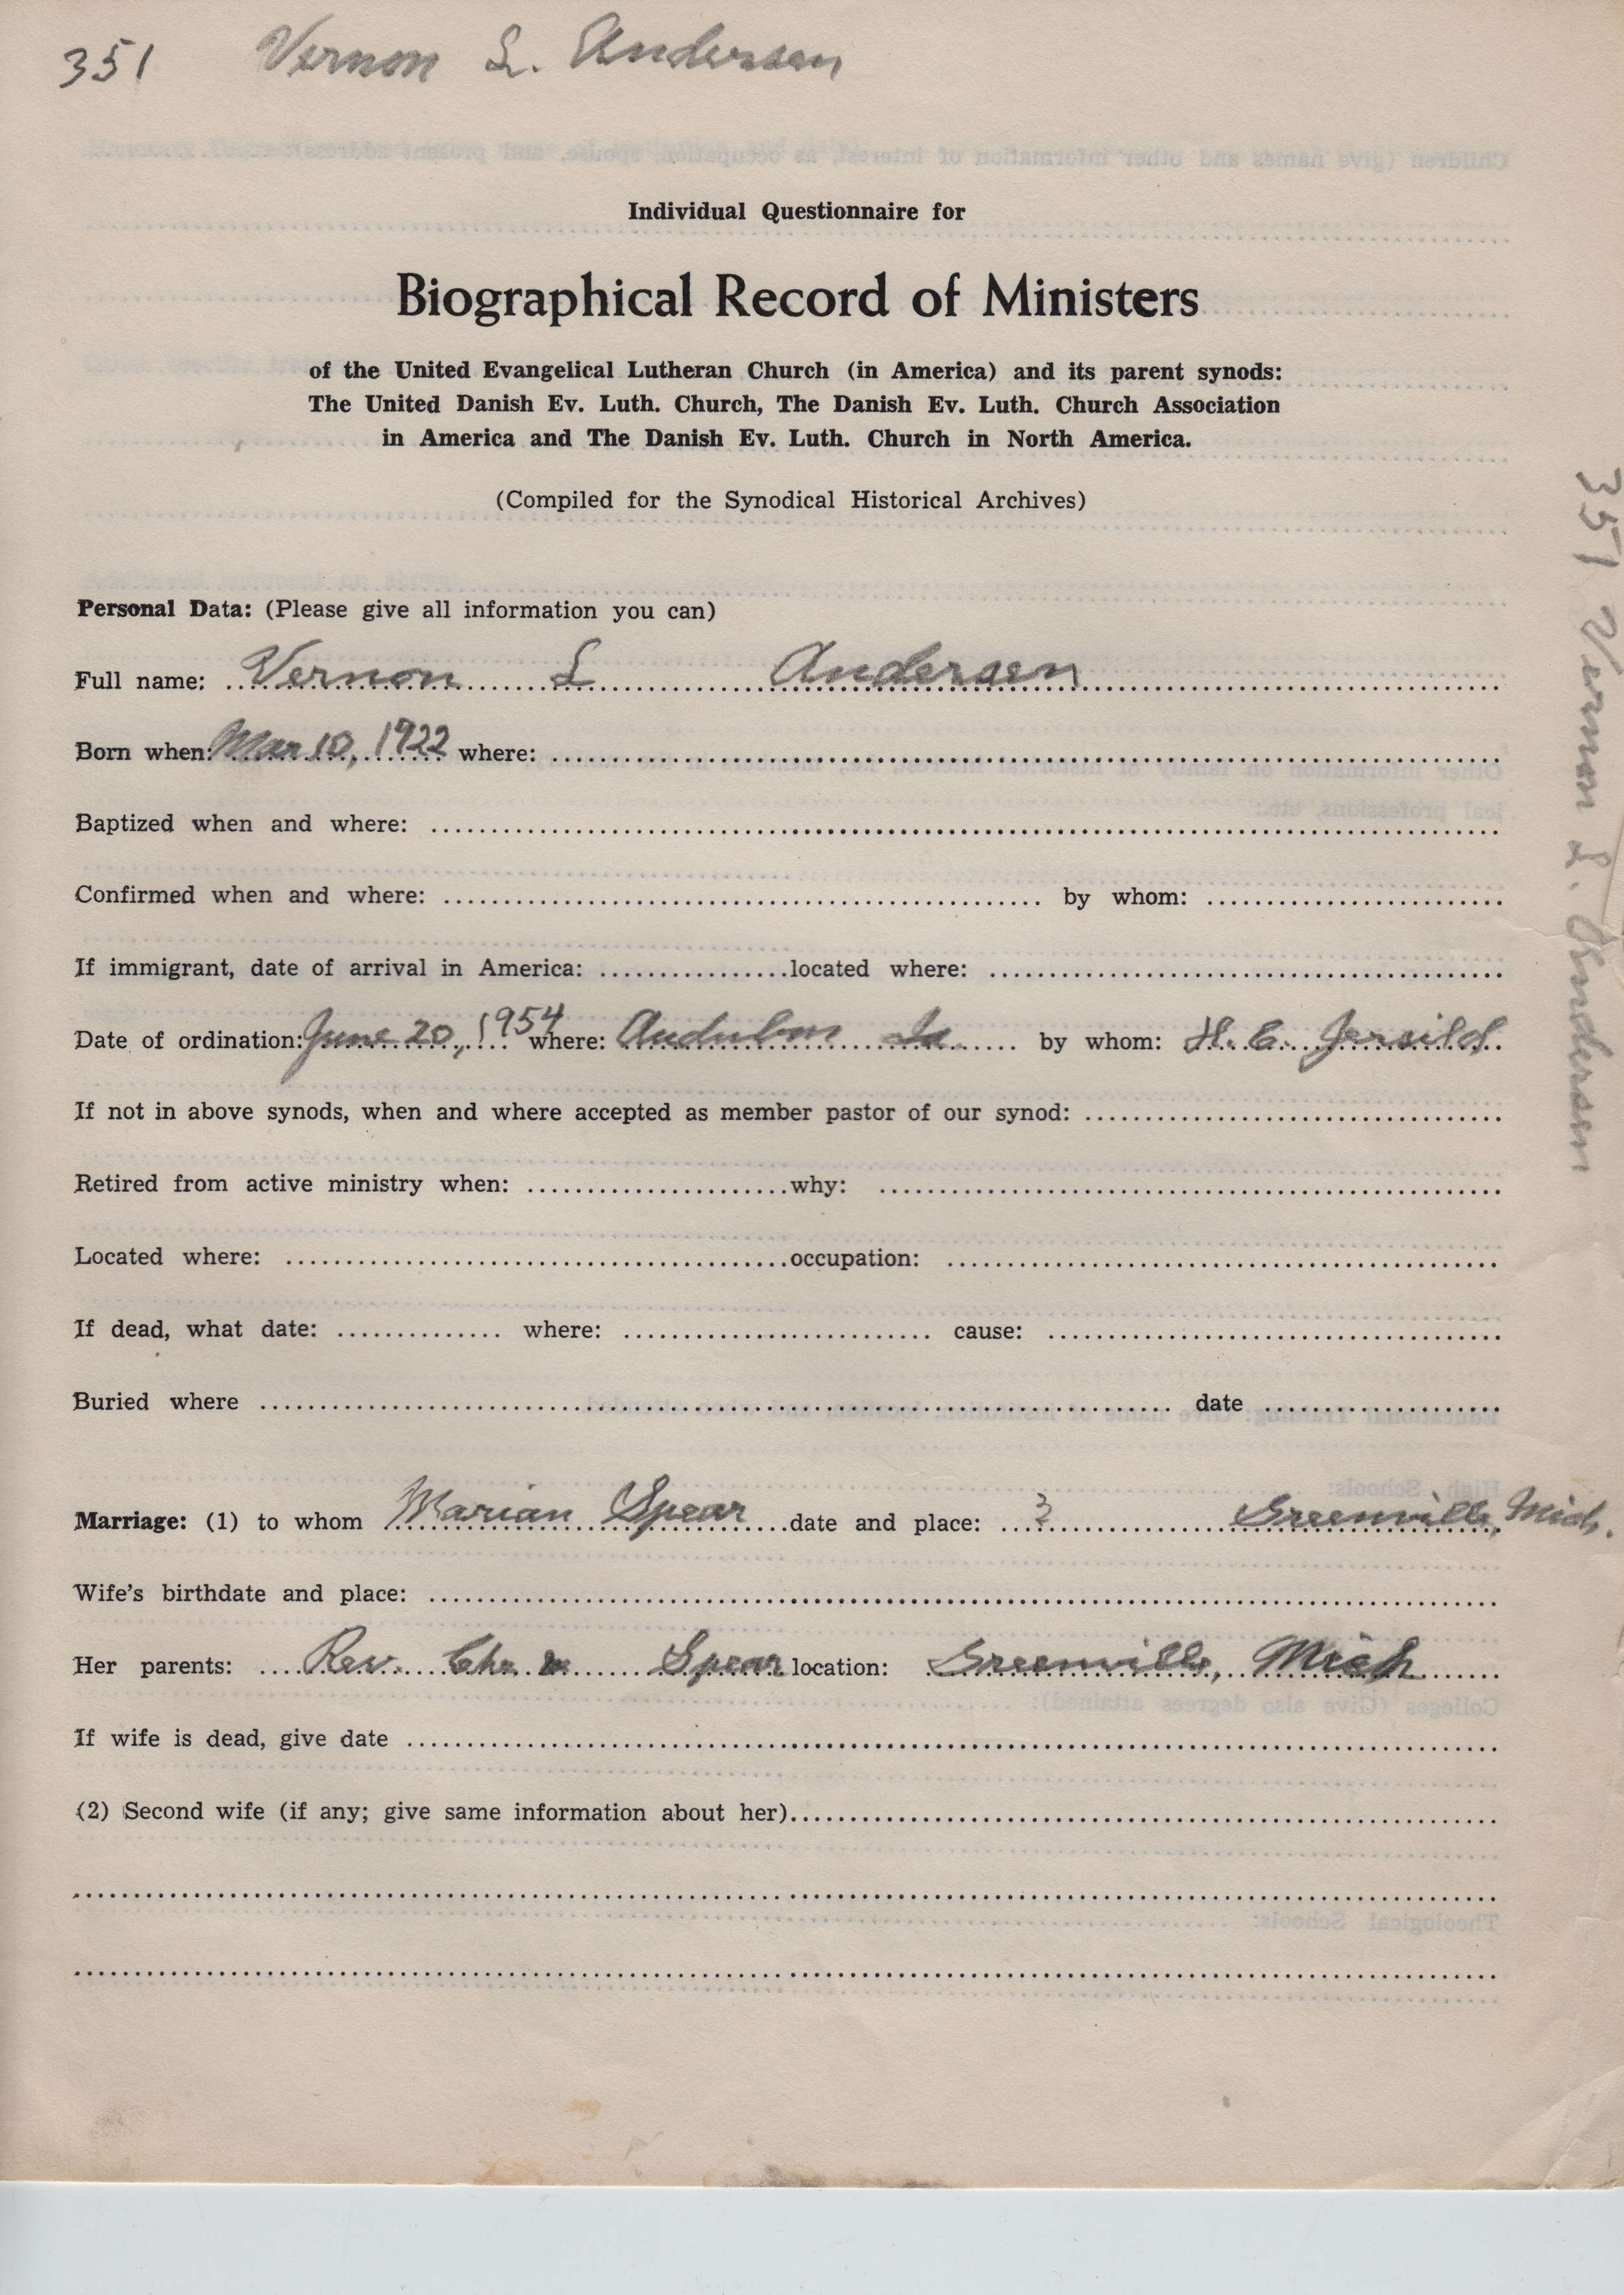 351 Vernon L. Andersen
Individual Questionnaire for
Biographical Record of Ministers
of the United Evangelical Lutheran Church (in America) and its parent synods:
The United Danish Ev. Luth. Church, The Danish Ev. Luth. Church Association
in America and The Danish Ev. Luth. Church in North America.
(Compiled for the Synodical Historical Archives)
Personal Data: (Please give all information you can)
Full name: Vernon L Andersen
Born when: Mar 10, 1922 where:
Baptized when and where:
Confirmed when and where: by whom:
If immigrant, date of arrival in America: located where:
Date of ordination: June 20, 1954 where: Audubon Ia by whom: H. C. Jersild
If not in above synods, when and where accepted as member pastor of our synod:
Retired from active ministry when: why:
Located where: occupation:
If dead, what date: where: cause:
Buried where date
Marriage: (1) to whom Marian Spear date and place: ? Greenville, Mich.
Wife's birthdate and place:
Her parents: Rev. Chr. Spear location: Greenville, Mich
If wife is dead, give date
(2) Second wife (if any; give same information about her)
351 Vernon L. Andersen